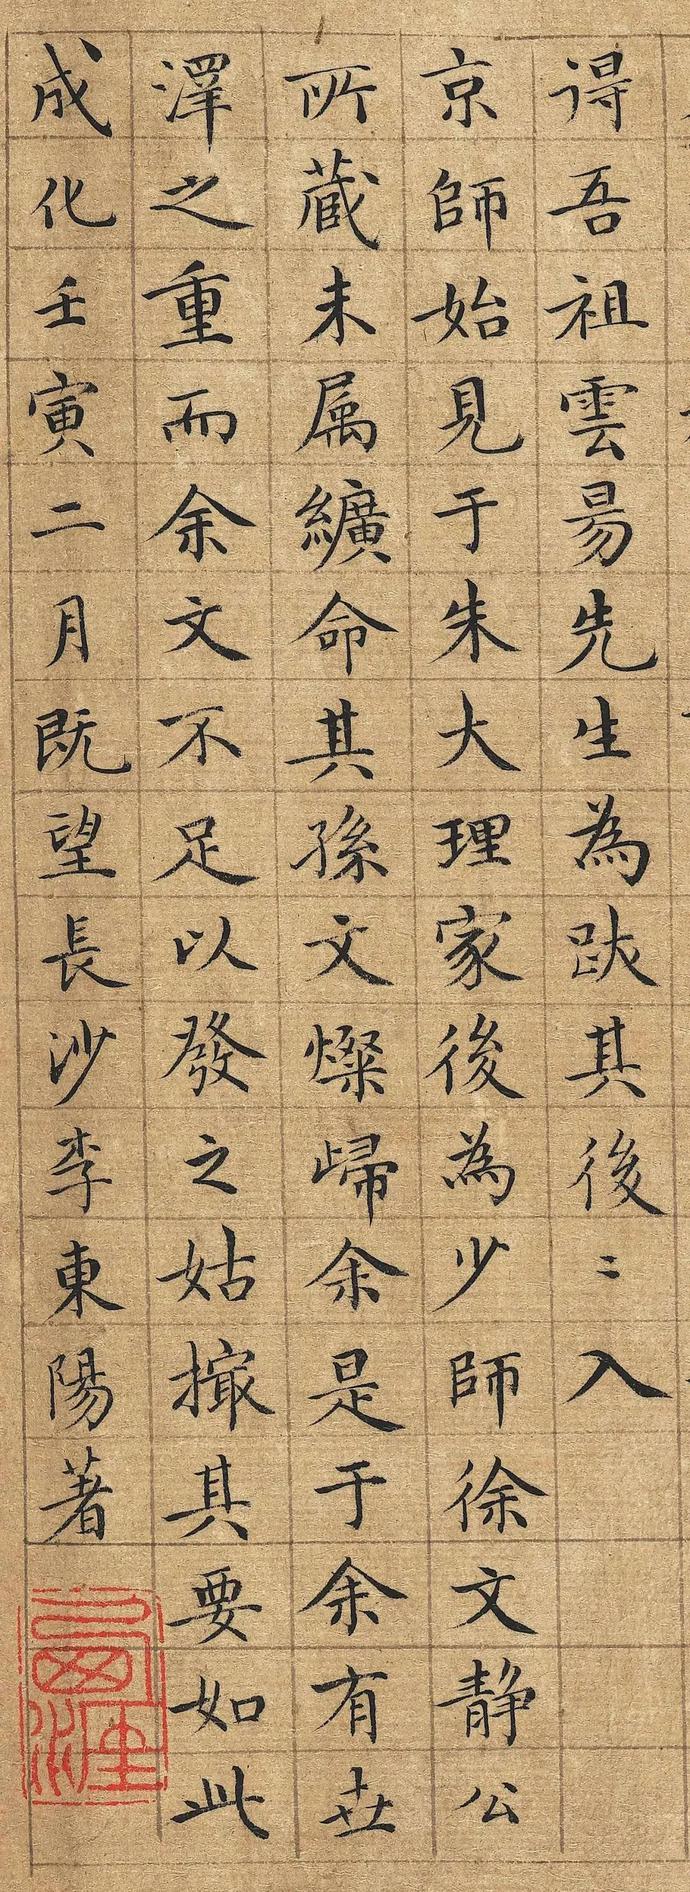 得吾祖雲昜先生為跋其後〻入
京師始見于朱大理家後為少師徐文静公
所蔵未属纊命其孫文燦歸余是于余有世
澤之重而余文不足以發之姑撮其要如此
成化壬寅二月既望長沙李東陽著